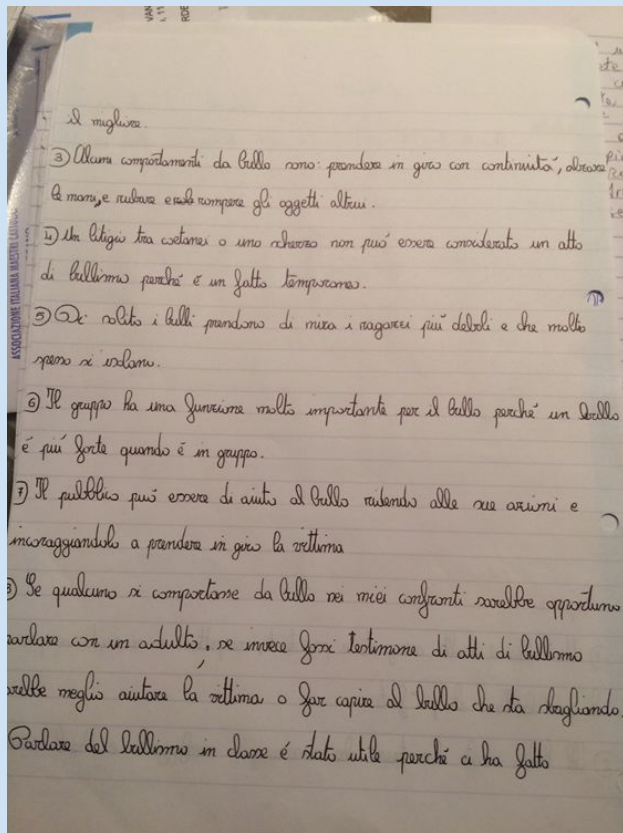 il migliore.
③ Alcuni comportamenti da bullo sono: prendere in giro con continuitá, alzare
le mani, e rubare e rompere gli oggetti altrui.
④ Un litigio tra coetanei o uno scherzo non puó essere considerato un atto
di bullismo perché é un fatto temporaneo.
⑤ Di solito i bulli prendono di mira i ragazzi piú deboli e che molto
spesso si isolano.
⑥ Il gruppo ha una funzione molto importante per il bullo perché un bullo
é piú forte quando é in gruppo.
⑦ Il pubblico puó essere di aiuto al bullo ridendo alle sue azioni e
incoraggiandolo a prendere in giro la vittima
Se qualcuno si comportasse da bullo nei miei confronti sarebbe opportuno
parlare con un adulto, se invece fossi testimone di atti di bullismo
sarebbe meglio aiutare la vittima o far capire al bullo che sta sbagliando.
Parlare del bullismo in classe é stato utile perché ci ha fatto
ASSOCIAZIONE ITALIANA MAESTRI CATTOLICI